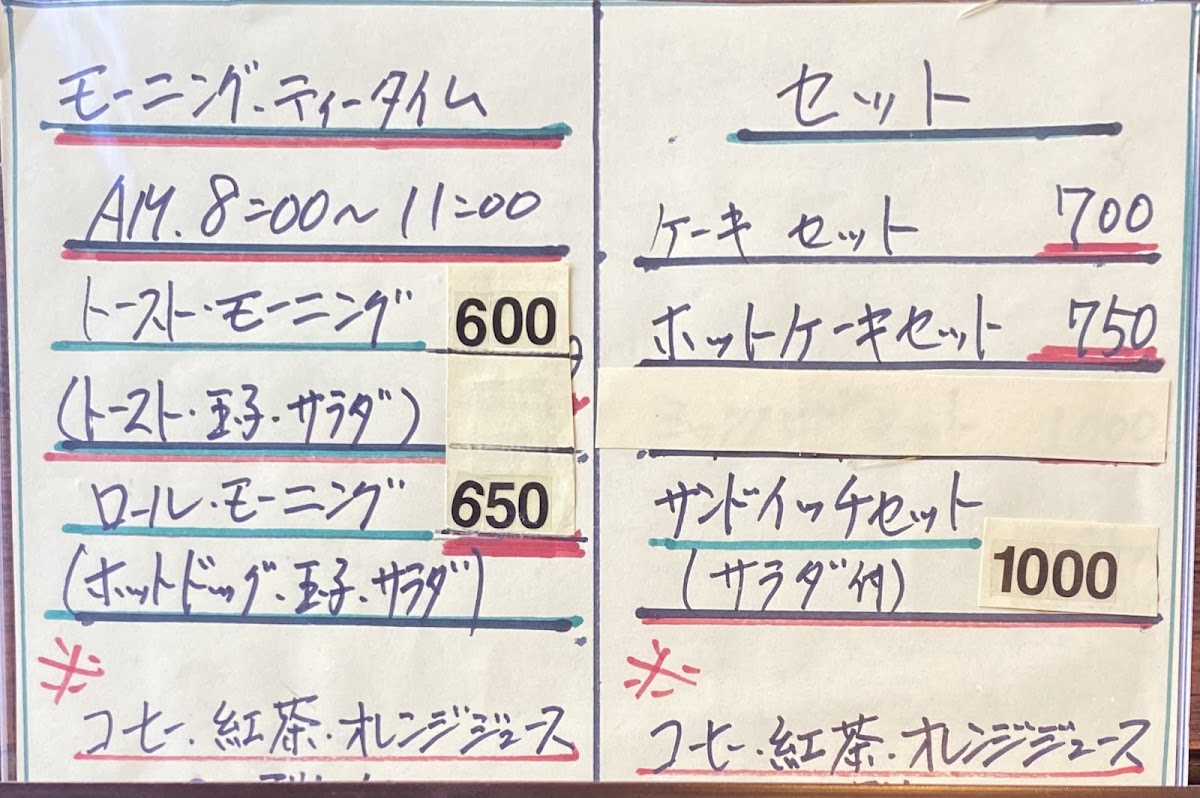 モーニング・ティータイム
AM. 8=00〜11=00
トースト・モーニング 600
(トースト・玉子・サラダ)
ロール・モーニング 650
(ホットドッグ・玉子・サラダ)
※
コーヒー・紅茶・オレンジジュース
セット
ケーキ セット 700
ホットケーキセット 750
サンドイッチセット
(サラダ付) 1000
※
コーヒー・紅茶・オレンジジュース